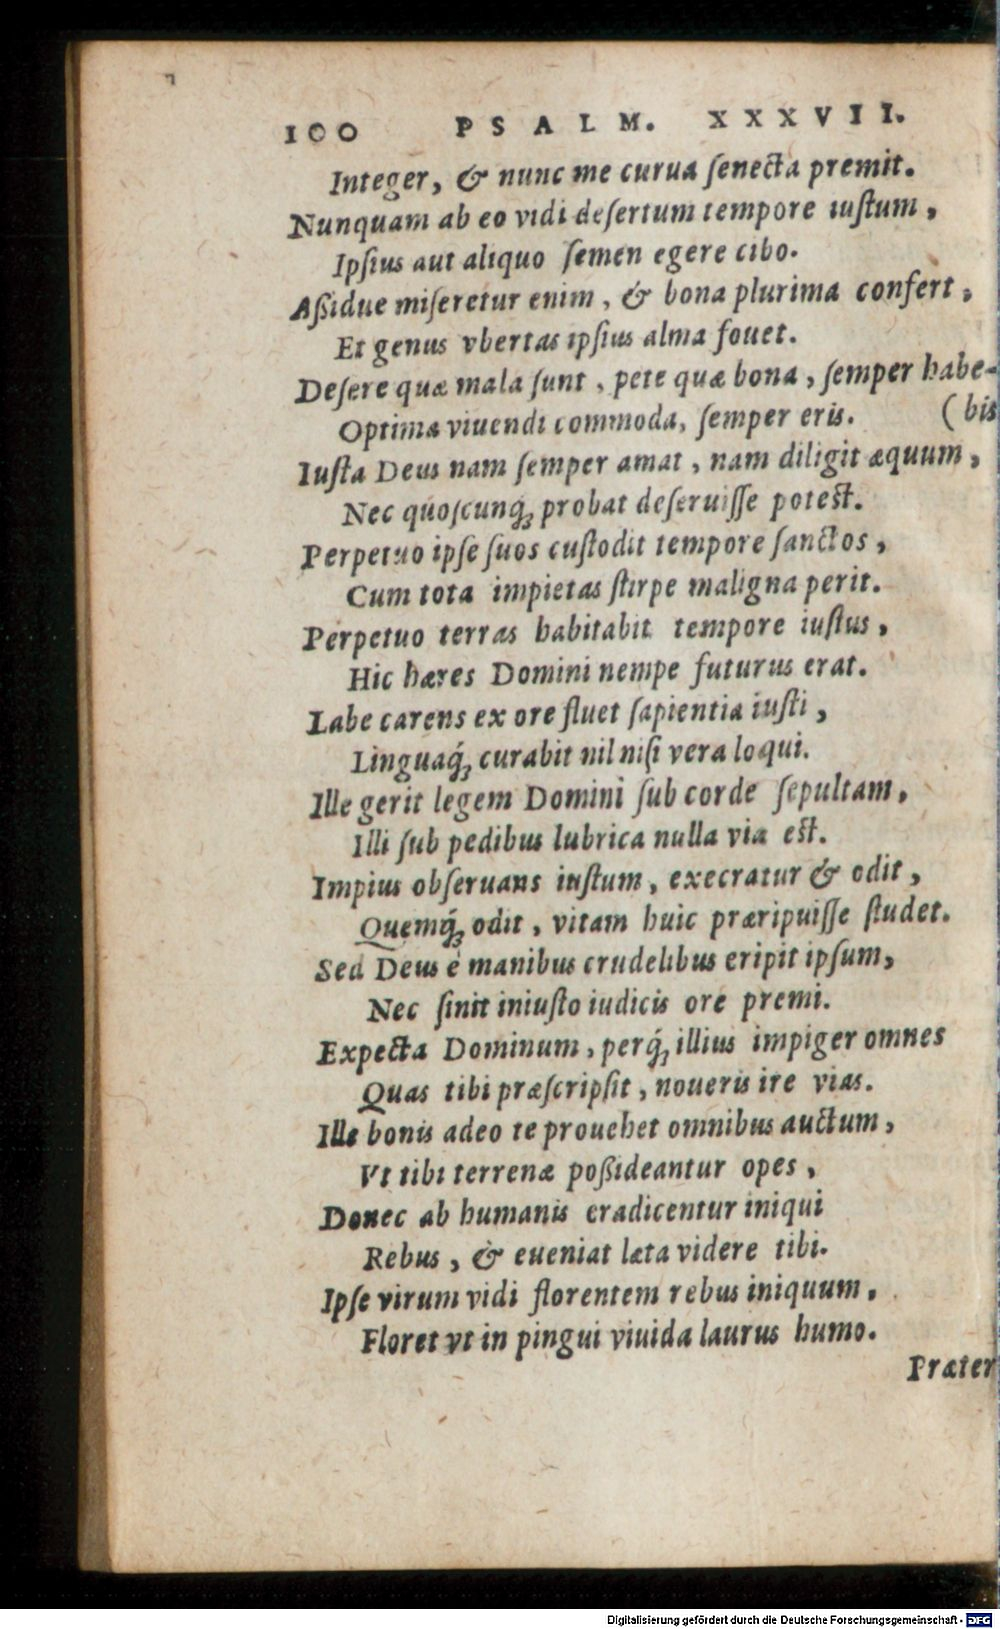 100 PSALM. XXXVII.
Integer, & nunc me curua ſenecta premit.
Nunquam ab eo vidi deſertum tempore iuſtum,
Ipſius aut aliquo ſemen egere cibo.
Aßidue miſeretur enim, & bona plurima confert,
Et genus vbertas ipſius alma fouet.
Deſere quæ mala ſunt, pete quæ bona, ſemper habe-
Optima viuendi commoda, ſemper eris. (bis
Iuſta Deus nam ſemper amat, nam diligit æquum,
Nec quoſcunq́; probat deſeruiſſe poteſt.
Perpetuo ipſe ſuos cuſtodit tempore ſanctos,
Cum tota impietas ſtirpe maligna perit.
Perpetuo terras habitabit tempore iuſtus,
Hic hæres Domini nempe futurus erat.
Labe carens ex ore fluet ſapientia iuſti,
Linguaq́; curabit nil niſi vera loqui.
Ille gerit legem Domini ſub corde ſepultam,
Illi ſub pedibus lubrica nulla via eſt.
Impius obſeruans iuſtum, execratur & odit,
Quemq́; odit, vitam huic præripuiſſe ſtudet.
Sed Deus è manibus crudelibus eripit ipſum,
Nec ſinit iniuſto iudicis ore premi.
Expecta Dominum, perq́; illius impiger omnes
Quas tibi præſcripſit, noueris ire vias.
Ille bonis adeo te prouehet omnibus auctum,
Vt tibi terrenæ poßideantur opes,
Donec ab humanis eradicentur iniqui
Rebus, & eueniat læta videre tibi.
Ipſe virum vidi florentem rebus iniquum,
Floret vt in pingui viuida laurus humo.
Præter
Digitalisierung gefördert durch die Deutsche Forschungsgemeinschaft - DFG